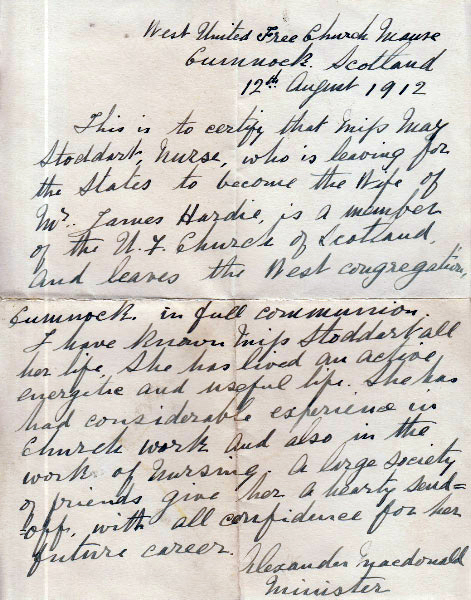 West United Free Church Manse
Cumnock. Scotland
12th August 1912
This is to certify that Miss May
Stoddart, Nurse, who is leaving for
the States to become the Wife of
Mr. James Hardie, is a member
of the U. F. Church of Scotland,
and leaves the West congregation,
Cumnock in full communion.
I have known Miss Stoddart all
her life. She has lived an active
energetic and useful life. She has
had considerable experience in
Church work and also in the
work of Nursing. A large society
of friends give her a hearty send=
-off, with all confidence for her
future career.
Alexander Macdonald
Minister